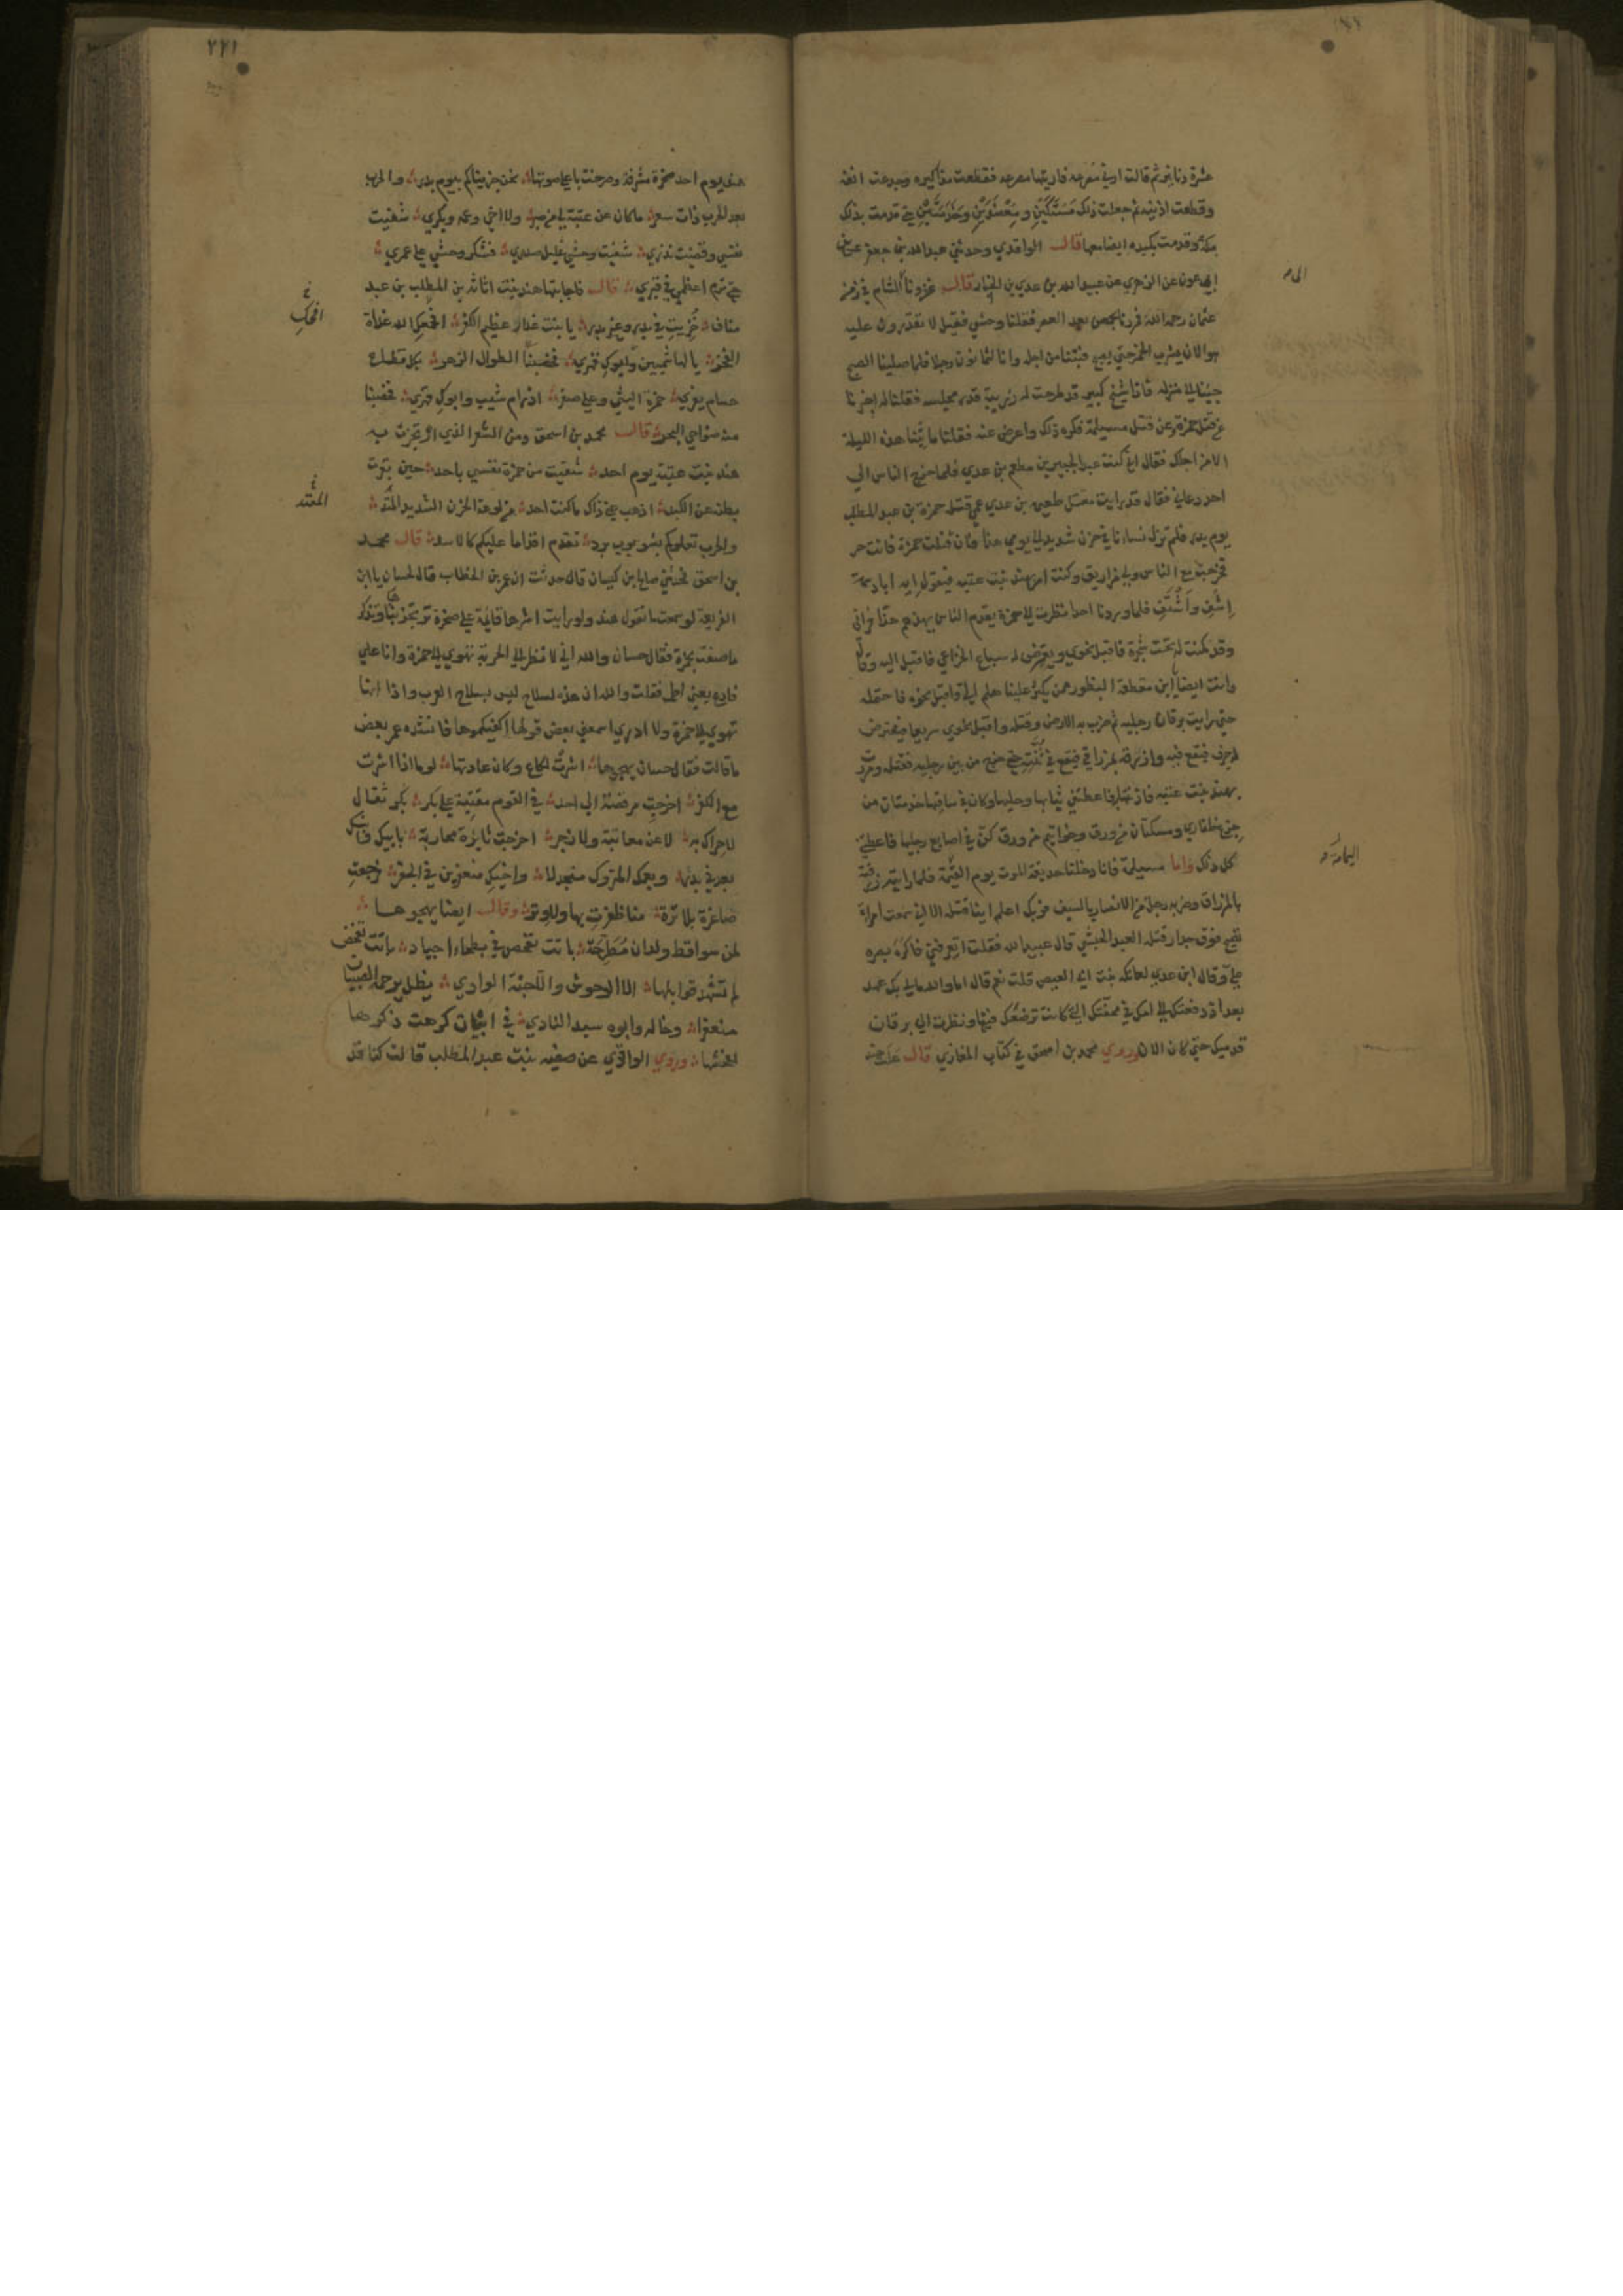 عشرة دنانير ثم قالت ارني مصرعه فاريتها مصرعه فقطعت مذاكيره وجدعت انفه
وقطعت اذنيه ثم جعلت ذلك مسكتين ومعضدين وخدمتين حتى قدمت بذلك
مكة وقدمت بكبده ايضا معها قال الواقدي وحدثني عبد الله بن جعفر عن ابن
ابي عون عن الزهري عن عبيد الله بن عدي بن الخيار قال غزونا الشام في زمن
عثمان رحمه الله فمررنا بحمص بعد العصر فقلنا وحشي فقيل لا تقدرون عليه
هو الان يشرب الخمر حتى يصبح فبتنا من اجله وانا لثمانون رجلا فلما صلينا الصبح
جئنا الى منزله فاذا شيخ كبير قد طرحت له زربية قدر مجلسه فقلنا له اخبرنا
عن قتل حمزة وعن قتل مسيلمة فكره ذلك واعرض عنه فقلنا ما بتنا هذه الليلة
الا من اجلك فقال اني كنت عبدا لجبير بن مطعم بن عدي فلما خرج الناس الى
احد دعاني فقال قد رايت مقتل طعيمة بن عدي عمي قتله حمزة بن عبد المطلب
يوم بدر فلم تزل نساءنا في حزن شديد الى يومي هذا فان قتلت حمزة فانت حر
فخرجت مع الناس ولي مزاريق وكنت امر بهند بنت عتبه فيقول ايه ابا دسمة
اشف واشتف فلما وردنا احدا نظرت الى حمزة يقدم الناس يهدهم هدا فراني
وقد كمنت له تحت شجرة فاقبل نحوي ويعرض له سباع الخزاعي فاقبل اليه وقال
وانت ايضا يا ابن مقطعة البظور ممن يكثر علينا هلم الي واقبل نحوه فاحتمله
حتى رايت برقان رجليه ثم ضرب به الارض وقتله واقبل نحوي سريعا فيعترض
له جرف فيقع فيه وازرقه بمزراقي فيقع في ثنته حتى خرج من بين رجليه فقتله ومررت
بهند بنت عتبه فاذنتها فاعطتني ثيابها وحليها وكان في ساقيها خدمتان من
جزع ظفاري ومسكتان من ورق وخواتيم من ورق كن في اصابع رجليها فاعطتني
كل ذلك واما مسيلمة فانا دخلنا حديقة الموت يوم اليمامة فلما رايته زرقته
بالمزراق وضربه رجل من الانصار بالسيف فربك اعلم اينا قتله الا اني سمعت امراة
تصيح فوق جدار قتله العبد الحبشي قال عبيد الله فقلت اتعرفني فاكر بصره
علي وقال ابن عدي لعاتكة بنت ابي العيص قلت نعم قال اما والله مالي بك عهد
بعد ان دفعتك الى امك في محفتك التي كانت ترضعك فيها ونظرت الى برقان
قدميك حتى كان الان وروي محمد بن اسحق في كتاب المغازي قال علت
الى
اليمامة
٢٢١
هند يوم احد صخرة مشرفة وصرخت باعلى صوتها نحن جزيناكم بيوم بدر والحرب
بعد الحرب ذات سعر ما كان عن عتبة لي من صبر ولا اخي وعمه وبكري شفيت
نفسي وقضيت نذري شفيت وحشي غليل صدري فشكر وحشي علي عمري
حتى ترم اعظمي في قبري قال فاجابتها هند بنت اثاثة بن المطلب بن عبد
مناف خزيت في بدر وغير بدر يا بنت غدار عظيم الكفر افحمك الله غداة
الفجر بالهاشميين الطوال الزهر بكل قطاع
حسام يفري حمزة ليثي وعلي صقري اذ رام شيب وابوك قهري فخضبنا
منه ضواحي النحر قال محمد بن اسحق ومن الشعر الذي ارتجزت به
هند بنت عتبة يوم احد شفيت من حمزة نفسي باحد حين بقرت
بطنه عن الكبد اذهب عني ذاك ما كنت اجد من لوعة الحزن الشديد المتقد
والحرب تعلوكم بشؤبوب برد نقدم اقداما عليكم كالاسد قال محمد
بن اسحق فحدثني صالح بن كيسان قال حدثت ان عمر بن الخطاب قال لحسان يا ابن
الفريعة لو سمعت ما تقول هند ولو رايت اشرها قائمة على صخرة ترتجز بنا وتذكر
ما صنعت بحمزة فقال حسان والله اني لانظر الى الحربة تهوي الى حمزة وانا على
فارع يعني اطمه فقلت والله ان هذه لسلاح ليس بسلاح العرب واذا انها
تهوي الى حمزة ولا ادري اسمعني بعض قولها اكفيكموها فانشده عمر بعض
ما قالت فقال حسان يهجوها اشرت لكاع وكان عادتها لوما اذا اشرت
مع الكفر اخرجت مرقصة الى احد في القوم مقتبة على بكر بكر ثفال
لا حراك به لا عن معاتبة ولا زجر اخرجت ثايرة محاربة بابيك وابنك
بعد في بدر وبعمك المتروك منجدلا واخيك منعفرين في الجفر فرجعت
صاغرة بلا ترة مما ظفرت بها ولا وتر وقال ايضا يهجوها
لمن سواقط ولدان مطرحة باتت تفحص في بطحاء اجياد باتت تمخض
لم تشهد قوابلها الا الوحوش والا جنة الوادي يظل يرجمه الصبيان
منعفرا وخاله وابوه سيد النادي في ابيات كرهت ذكرها
لفحشها وروي الواقدي عن صفيه بنت عبد المطلب قالت كنا قد
المتقد